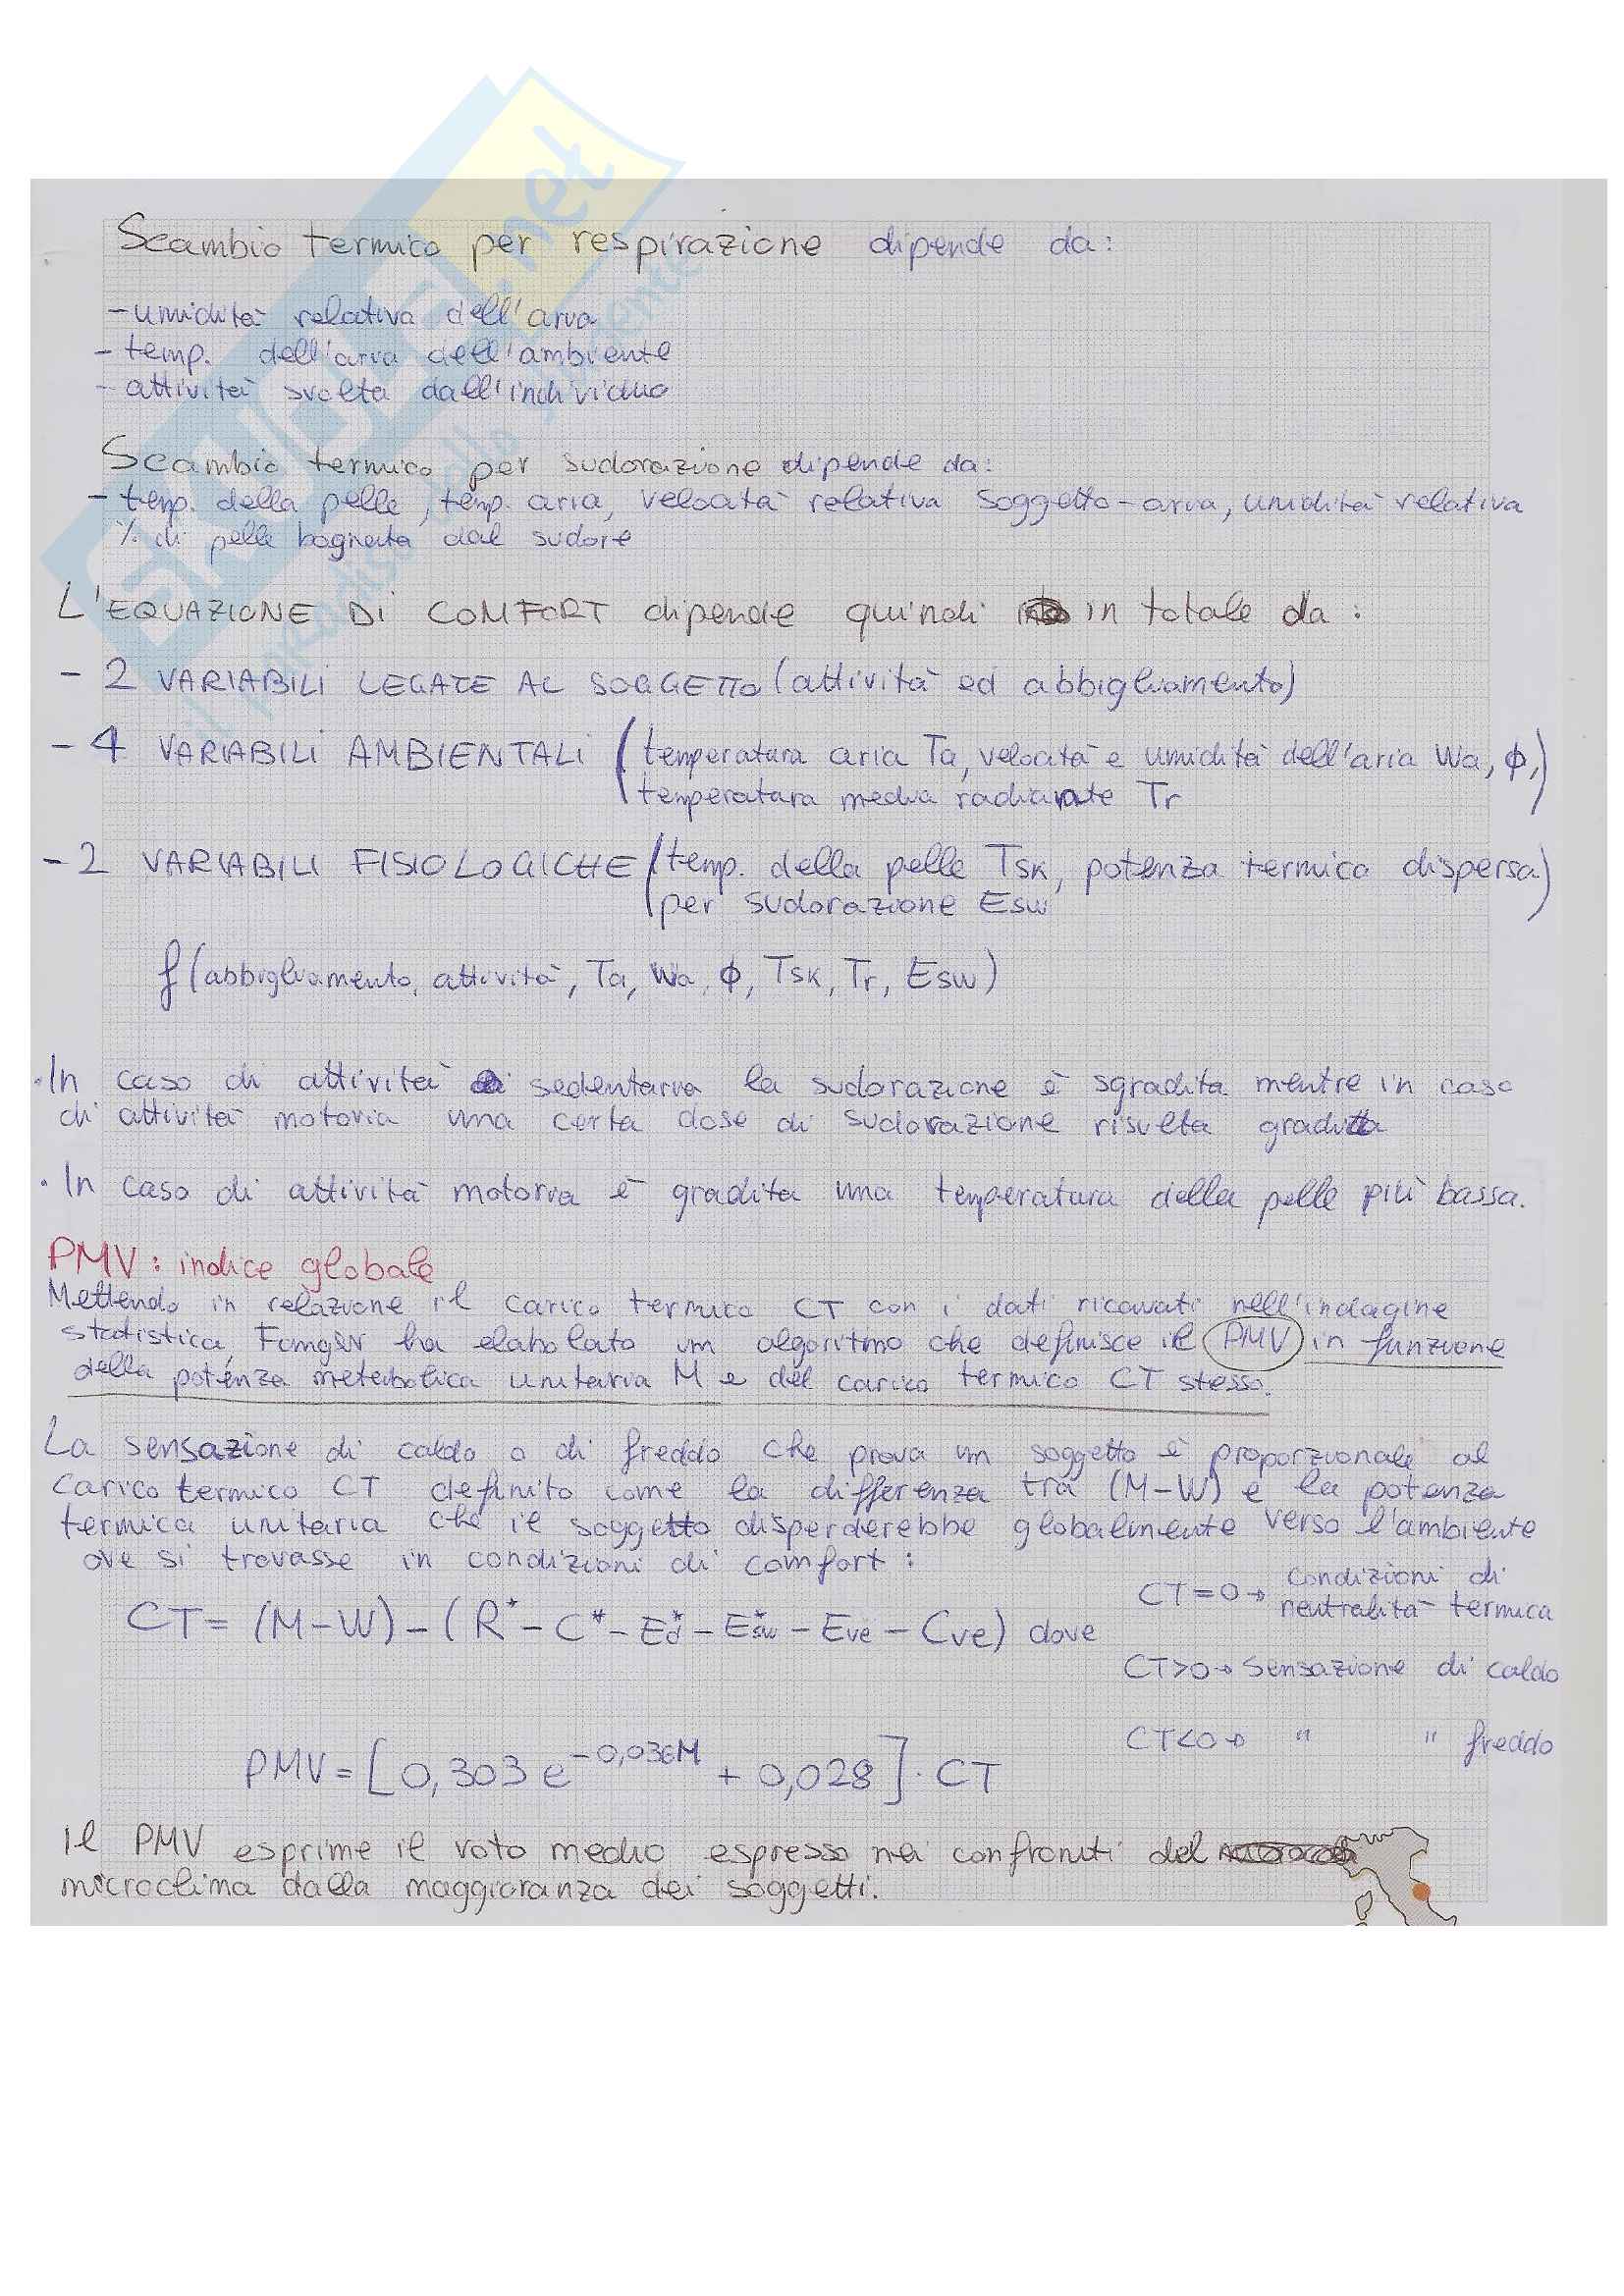 Scambio termico per respirazione dipende da:
- umidità relativa dell'aria
- temp. dell'aria dell'ambiente
- attività svolta dall'individuo
Scambio termico per sudorazione dipende da:
- temp. della pelle, temp. aria, velocità relativa soggetto-aria, umidità relativa
% di pelle bagnata dal sudore
L'EQUAZIONE DI COMFORT dipende quindi in totale da:
- 2 VARIABILI LEGATE AL SOGGETTO (attività ed abbigliamento)
- 4 VARIABILI AMBIENTALI (temperatura aria Ta, velocità e umidità dell'aria Wa, ϕ,
temperatura media radiante Tr)
- 2 VARIABILI FISIOLOGICHE (temp. della pelle Tsk, potenza termica dispersa
per sudorazione Esw)
f(abbigliamento, attività, Ta, Wa, ϕ, Tsk, Tr, Esw)
· In caso di attività sedentaria la sudorazione è sgradita mentre in caso
di attività motoria una certa dose di sudorazione risulta gradita
· In caso di attività motoria è gradita una temperatura della pelle più bassa.
PMV: indice globale
Mettendo in relazione il carico termico CT con i dati ricavati nell'indagine
statistica, ha elaborato un algoritmo che definisce il PMV in funzione
della potenza metabolica unitaria M e del carico termico CT stesso.
La sensazione di caldo o di freddo che prova un soggetto è proporzionale al
carico termico CT definito come la differenza tra (M-W) e la potenza
termica unitaria che il soggetto disperderebbe globalmente verso l'ambiente
ove si trovasse in condizioni di comfort:
CT=0→ condizioni di
neutralità termica
CT= (M-W)-(R*-C*-Ed*-Esw*-Eve-Cve) dove
CT>0→ sensazione di caldo
CT<0→ " " freddo
PMV=[0,303 e^-0,036M + 0,028]·CT
Il PMV esprime il voto medio espresso nei confronti del
microclima dalla maggioranza dei soggetti.